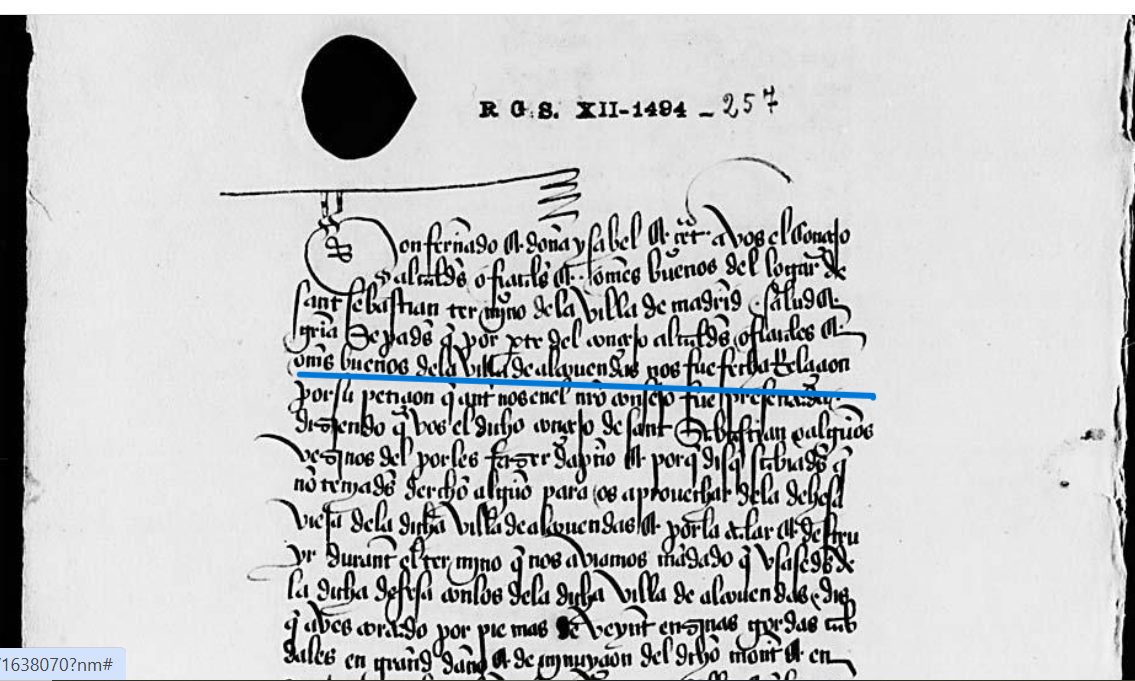 R G. S. XII-1494 - 257
Don fernãdo & doña ysabel & cet. a vos el conçejo
& alcalds ofiçiales & omes buenos del logar de
sant sebastian termjno de la villa de madrid salud &
grãçia Sepads q̃ por pte del conçejo alcalds ofiçiales &
oms buenos dela villa de alcouendas nos fue fecha Relaçion
por su petiçion q̃ ant nos enel nrõ consejo fue presentada
disiendo q̃ vos el dicho conçejo de sant Sebastian & algũos
vezjnos del por les fazer daño & porq̃ disq̃ sabiads q̃
nõ teniads derechõ algũo para os aprouechar dela dehesa
vieja dela dicha villa de alcouendas & por la talar & destru
yr durant el termjno q̃ nos aviamos mãdado q̃ vsaseds de
la dicha defesa conlos dela dicha villa de alcouendas dis
q̃ aves cortado por pie mas de veynt enzinas gordas cab
dales en grand daño & demjnuyçion del dichõ mont & en
1638070?nm#